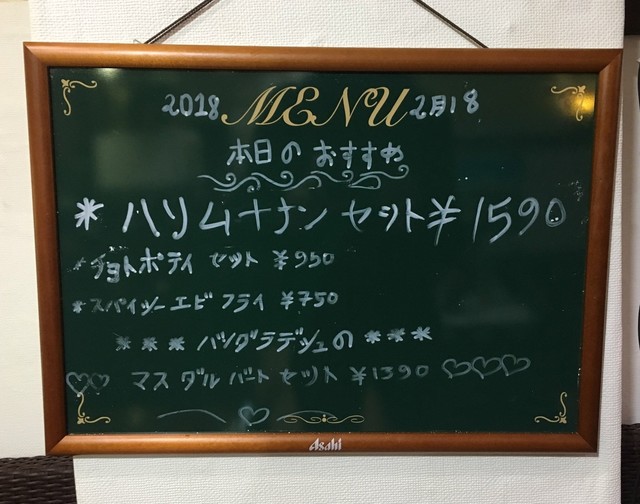 2018 MENU 2月18
本日の おすすめ
* ハリム+ナン セット ¥1590
*チョトポティ セット ¥950
*スパイシーエビ フライ ¥750
*** バングラデシュの ***
♡♡ マス ダル バート セット ¥1390 ♡♡♡
♡
Asahi